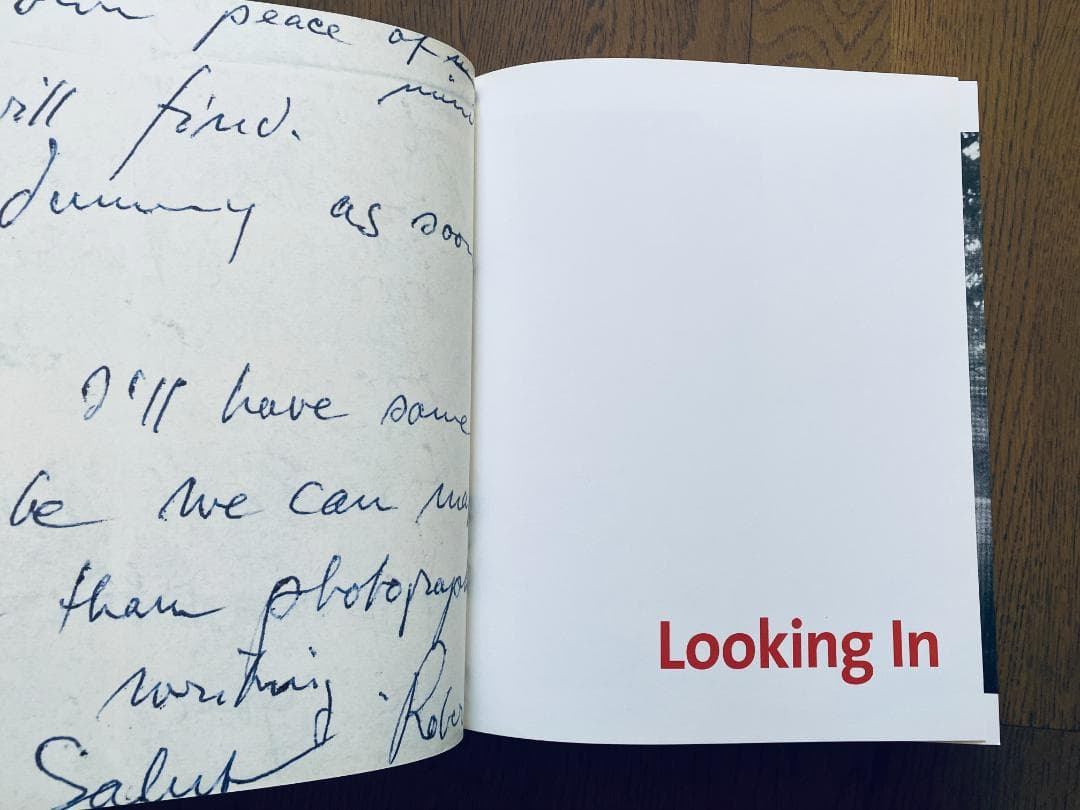 own peace of
mind
will find.
dummy as soon
I'll have some
be we can
than photograph
writing. Rober
Salut
Looking In